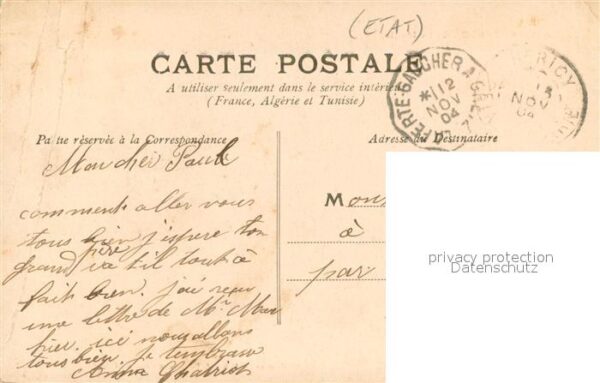 (ETAT)
CARTE POSTALE
A utiliser seulement dans le service intérieur
(France, Algérie et Tunisie)
Partie réservée à la Correspondance
Adresse du Destinataire
LA FERTE-GAUCHER A
*1 12
NOV
04
13
NOV
04
Mon cher Paul
comment aller vous
tous bien j'espere ton
grand père va t'il tout à
fait bien. j'ai reçu
une lettre de Mr
hier. ici nous allons
tous bien. je t'embrasse
Anna
Mons
à
par
privacy protection
Datenschutz